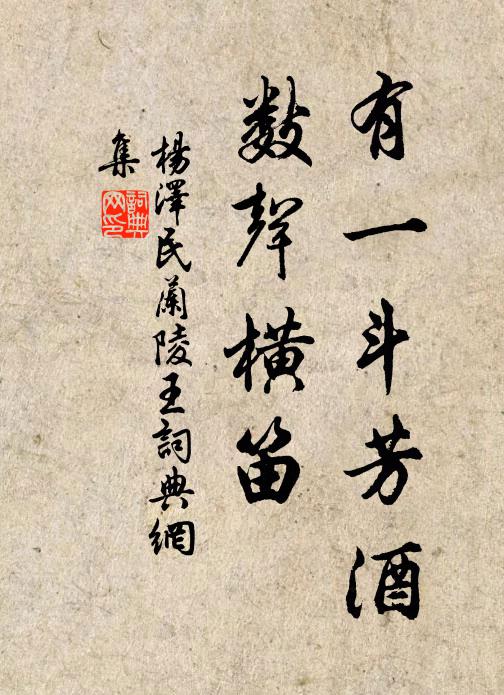 有一斗芳酒
数聲橫笛
楊澤民蘭陵王詞典網
集
詞典
网印